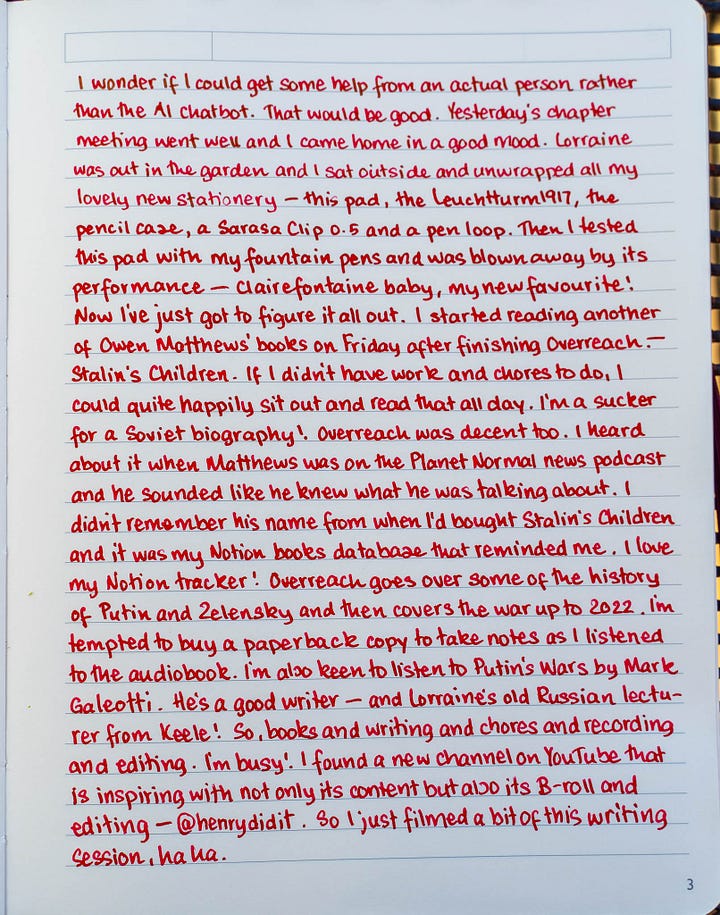 I wonder if I could get some help from an actual person rather
than the AI chatbot. That would be good. Yesterday's chapter
meeting went well and I came home in a good mood. Lorraine
was out in the garden and I sat outside and unwrapped all my
lovely new stationery – this pad, the Leuchtturm1917, the
pencil case, a Sarasa Clip 0.5 and a pen loop. Then I tested
this pad with my fountain pens and was blown away by its
performance – Clairefontaine baby, my new favourite!
Now I've just got to figure it all out. I started reading another
of Owen Matthews' books on Friday after finishing Overreach –
Stalin's Children. If I didn't have work and chores to do, I
could quite happily sit out and read that all day. I'm a sucker
for a Soviet biography! Overreach was decent too. I heard
about it when Matthews was on the Planet Normal news podcast
and he sounded like he knew what he was talking about. I
didn't remember his name from when I'd bought Stalin's Children
and it was my Notion books database that reminded me. I love
my Notion tracker! Overreach goes over some of the history
of Putin and Zelensky and then covers the war up to 2022. I'm
tempted to buy a paperback copy to take notes as I listened
to the audiobook. I'm also keen to listen to Putin's Wars by Mark
Galeotti. He's a good writer – and Lorraine's old Russian lectu-
rer from Keele! So, books and writing and chores and recording
and editing. I'm busy! I found a new channel on YouTube that
is inspiring with not only its content but also its B-roll and
editing – @henrydidit. So I just filmed a bit of this writing
session, ha ha.
3